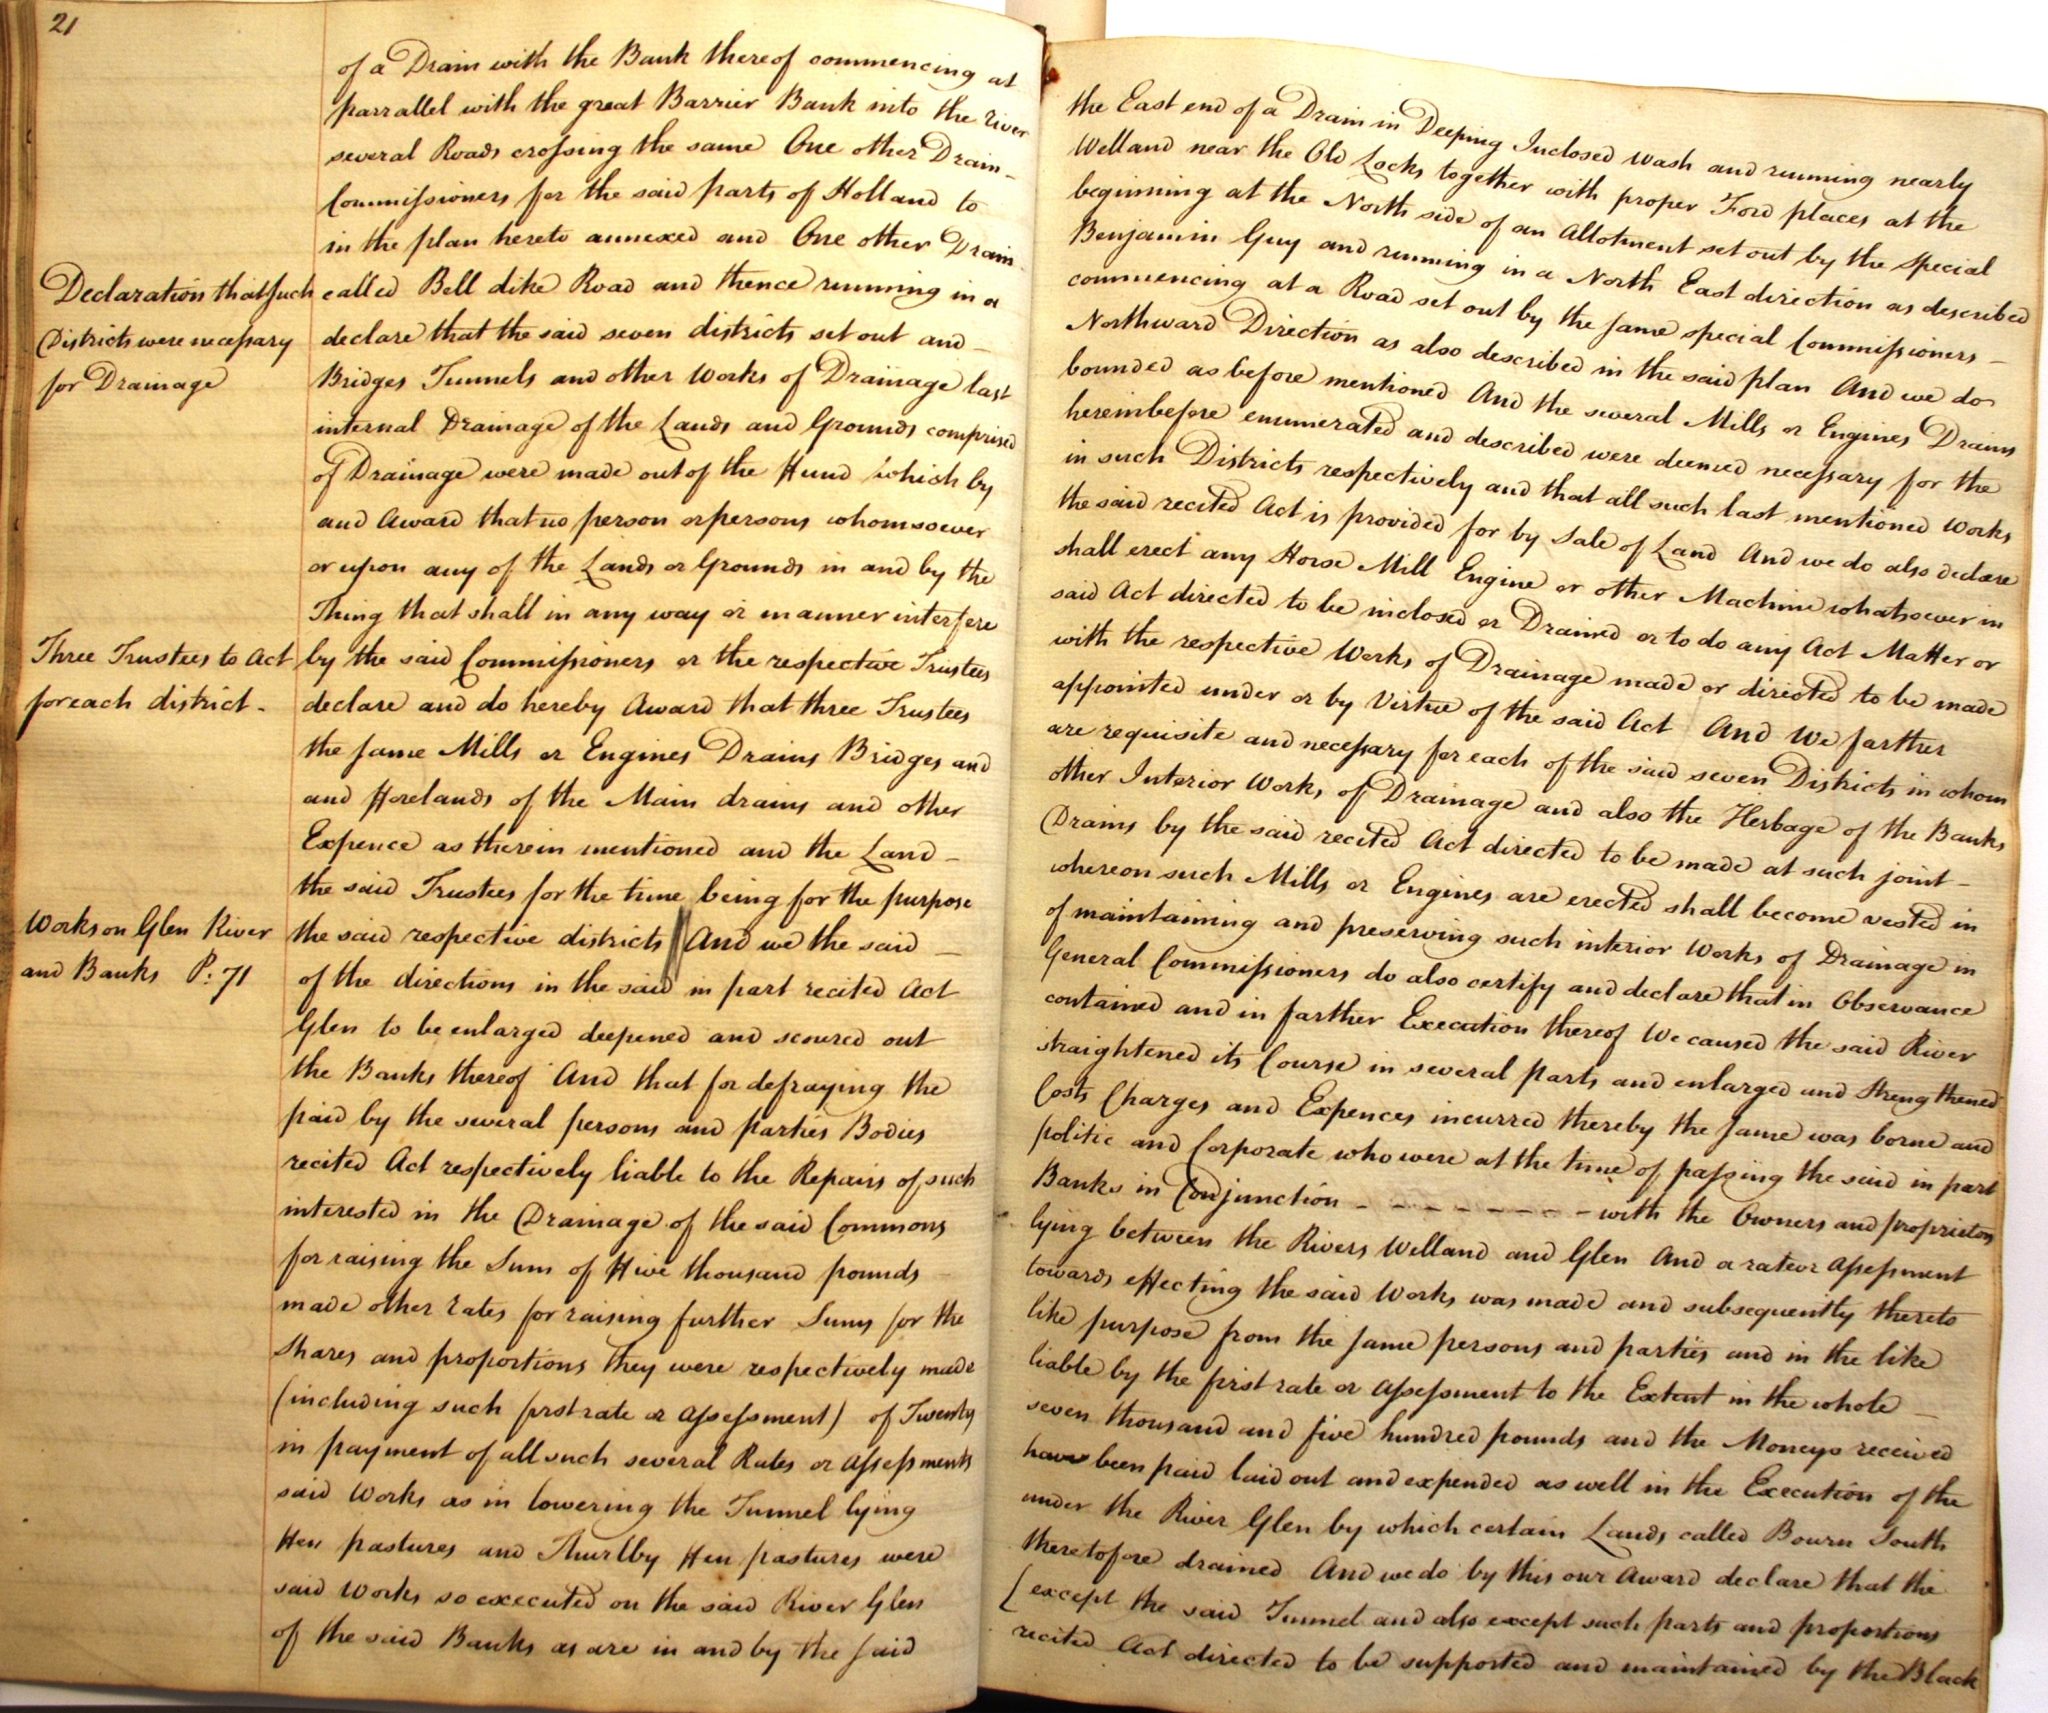 21
of a Drain with the Bank thereof commencing at the East end of a Drain in Deeping Inclosed Wash and running nearly
parrallel with the great Barrier Bank into the river Welland near the Old Locks together with proper Ford places at the
several Roads crossing the same One other Drain - beginning at the North side of an Allotment set out by the Special
Commissioners for the said parts of Holland to Benjamin Guy and running in a North East direction as described
in the plan hereto annexed and One other Drain commencing at a Road set out by the same special Commissioners -
Declaration that such
Districts were necessary
for Drainage
called Bell dike Road and thence running in a Northward Direction as also described in the said plan And we do
declare that the said seven districts set out and - bounded as before mentioned And the several Mills or Engines Drains
Bridges Tunnels and other Works of Drainage last hereinbefore enumerated and described were deemed necessary for the
internal Drainage of the Lands and Grounds comprised in such Districts respectively and that all such last mentioned Works
of Drainage were made out of the Fund which by the said recited Act is provided for by Sale of Land And we do also declare
and Award that no person or persons whomsoever shall erect any Horse Mill Engine or other Machine whatsoever in
or upon any of the Lands or Grounds in and by the said Act directed to be inclosed or Drained or to do any Act Matter or
Thing that shall in any way or manner interfere with the respective Works of Drainage made or directed to be made
Three Trustees to Act
for each district -
by the said Commissioners or the respective Trustees appointed under or by Virtue of the said Act And We farther
declare and do hereby Award that three Trustees are requisite and necessary for each of the said seven Districts in whom
the same Mills or Engines Drains Bridges and other Interior Works of Drainage and also the Herbage of the Banks
and Forelands of the Main drains and other Drains by the said recited Act directed to be made at such joint -
Expence as therein mentioned and the Land - whereon such Mills or Engines are erected shall become vested in
the said Trustees for the time being for the purpose of maintaining and preserving such interior Works of Drainage in
Works on Glen River
and Banks P. 71
the said respective districts And we the said - General Commissioners do also certify and declare that in Observance
of the directions in the said in part recited Act contained and in farther Execution thereof We caused the said River
Glen to be enlarged deepened and scoured out straightened its Course in several parts and enlarged and Strengthened
the Banks thereof And that for defraying the Costs Charges and Expences incurred thereby the same was borne and
paid by the several persons and parties Bodies politic and Corporate who were at the time of passing the said in part
recited Act respectively liable to the Repairs of such Banks in Conjunction - - - - - - - - with the Owners and proprietors
interested in the Drainage of the said Commons lying between the Rivers Welland and Glen And a rate or Assessment
for raising the Sum of Five thousand pounds towards effecting the said Works was made and subsequently thereto
made other rates for raising further Sums for the like purpose from the same persons and parties and in the like
Shares and proportions they were respectively made liable by the first rate or Assessment to the Extent in the whole -
(including such first rate or Assessment) of Twenty seven thousand and five hundred pounds and the Moneys received
in payment of all such several Rates or Assessments have been paid laid out and expended as well in the Execution of the
said Works as in lowering the Tunnel lying under the River Glen by which certain Lands called Bourn South
Fen pastures and Thurlby Fen pastures were theretofore drained And we do by this our Award declare that the
said Works so executed on the said River Glen (except the said Tunnel and also except such parts and proportions
of the said Banks as are in and by the said recited Act directed to be supported and maintained by the Black